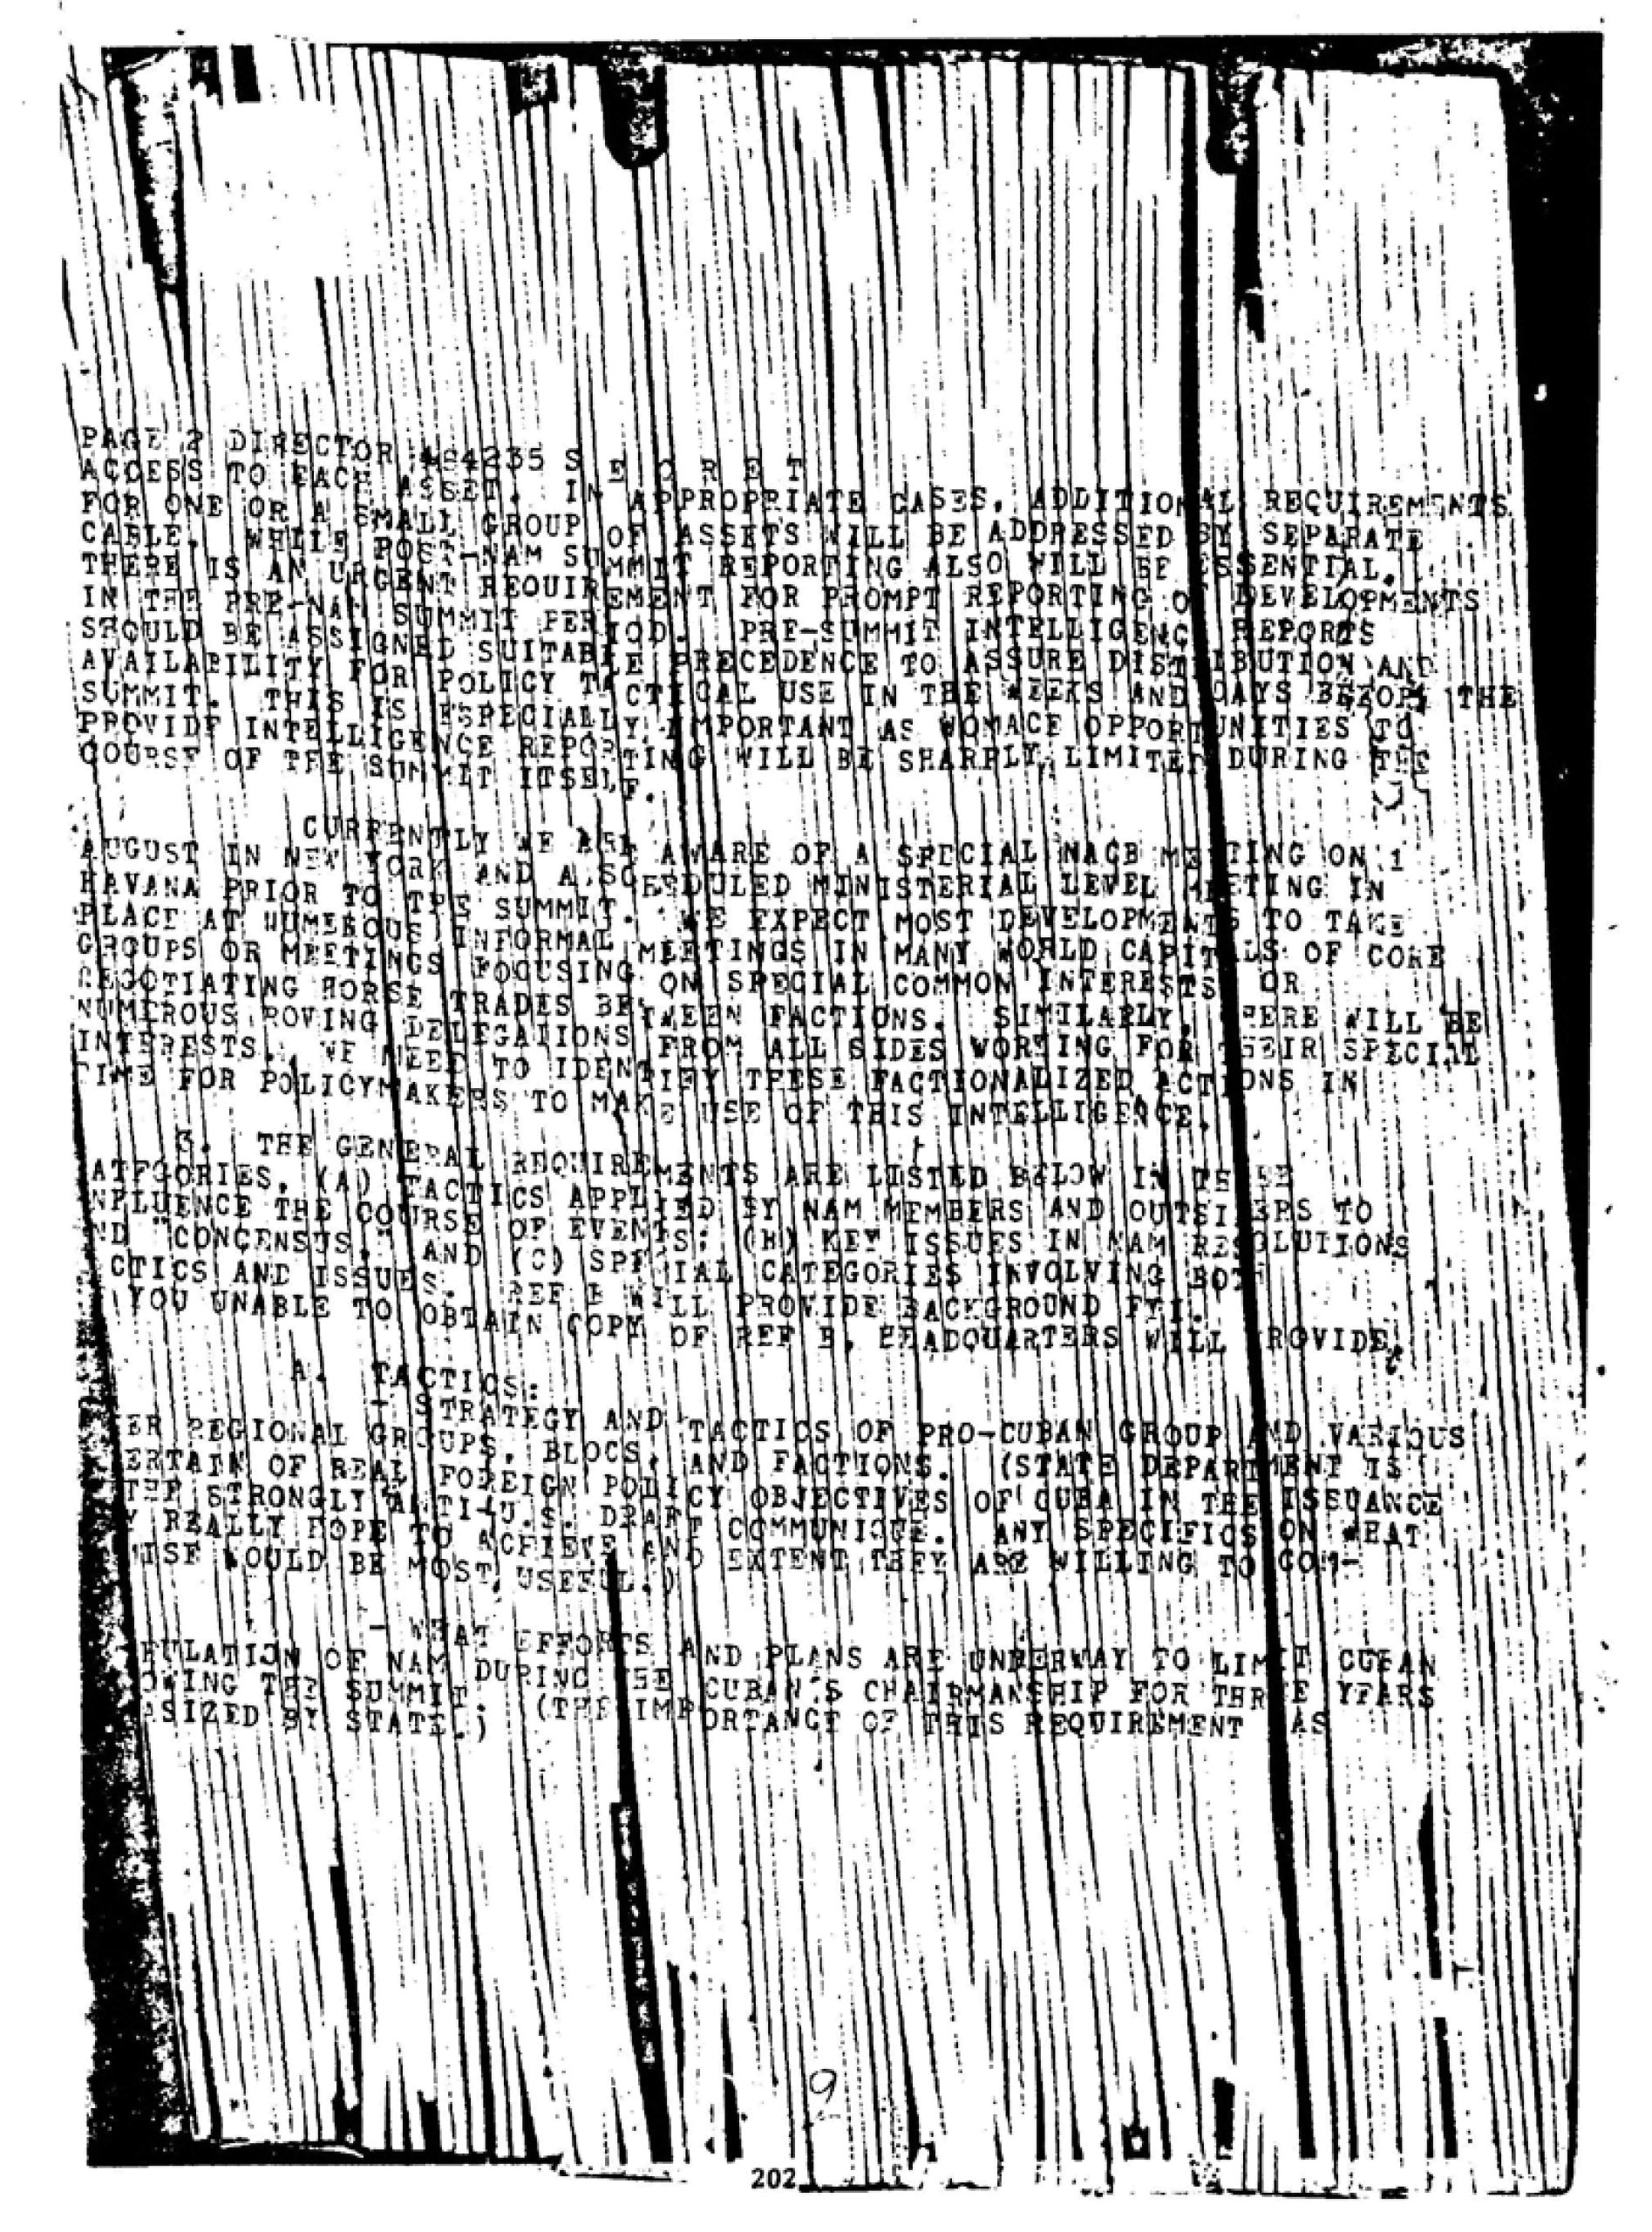 PAGE 2 DIRECTOR 454235 S E C R E T
ACCESS TO EACH ASSET. IN APPROPRIATE CASES, ADDITIONAL REQUIREMENTS
FOR ONE OR A SMALL GROUP OF ASSETS WILL BE ADDRESSED BY SEPARATE
CABLE. WHILE POST-NAM SUMMIT REPORTING ALSO WILL BE ESSENTIAL,
THERE IS AN URGENT REQUIREMENT FOR PROMPT REPORTING OF DEVELOPMENTS
IN THE PRE-NAM SUMMIT PERIOD. PRE-SUMMIT INTELLIGENCE REPORTS
SHOULD BE ASSIGNED SUITABLE PRECEDENCE TO ASSURE DISTRIBUTION AND
AVAILABILITY FOR POLICY TACTICAL USE IN THE WEEKS AND DAYS BEFORE THE
SUMMIT. THIS IS ESPECIALLY IMPORTANT AS WOMACE OPPORTUNITIES TO
PROVIDE INTELLIGENCE REPORTING WILL BE SHARPLY LIMITED DURING THE
COURSE OF THE SUMMIT ITSELF.
CURRENTLY WE ARE AWARE OF A SPECIAL NACB MEETING ON 1
AUGUST IN NEW YORK AND A SCHEDULED MINISTERIAL LEVEL MEETING IN
HAVANA PRIOR TO THE SUMMIT. WE EXPECT MOST DEVELOPMENTS TO TAKE
PLACE AT NUMEROUS INFORMAL MEETINGS IN MANY WORLD CAPITALS OF CORE
GROUPS OR MEETINGS FOCUSING ON SPECIAL COMMON INTERESTS OR
NEGOTIATING HORSE TRADES BETWEEN FACTIONS. SIMILARLY, THERE WILL BE
NUMEROUS ROVING DELEGATIONS FROM ALL SIDES WORKING FOR THEIR SPECIAL
INTERESTS. WE NEED TO IDENTIFY THESE FACTIONALIZED ACTIONS IN
TIME FOR POLICYMAKERS TO MAKE USE OF THIS INTELLIGENCE.
3. THE GENERAL REQUIREMENTS ARE LISTED BELOW IN THESE
ATEGORIES, (A) TACTICS APPLIED BY NAM MEMBERS AND OUTSIDERS TO
NFLUENCE THE COURSE OF EVENTS; (H) KEY ISSUES IN NAM RESOLUTIONS
ND "CONCENSUS," AND (C) SPECIAL CATEGORIES INVOLVING BOTH
CTICS AND ISSUES. REF B WILL PROVIDE BACKGROUND FYI.
YOU UNABLE TO OBTAIN COPY OF REF B, HEADQUARTERS WILL PROVIDE.
A. TACTICS:
- STRATEGY AND TACTICS OF PRO-CUBAN GROUP AND VARIOUS
ER REGIONAL GROUPS, BLOCS, AND FACTIONS. (STATE DEPARTMENT IS
ERTAIN OF REAL FOREIGN POLICY OBJECTIVES OF CUBA IN THE ISSUANCE
THE STRONGLY ANTI-U.S. DRAFT COMMUNIQUE. ANY SPECIFICS ON WHAT
Y REALLY HOPE TO ACHIEVE AND EXTENT THEY ARE WILLING TO COM-
MISE WOULD BE MOST USEFUL.)
- WHAT EFFORTS AND PLANS ARE UNDERWAY TO LIMIT CUBAN
PULATION OF NAM DURING THE CUBAN'S CHAIRMANSHIP FOR THREE YEARS
OWING THE SUMMIT. (THE IMPORTANCE OF THIS REQUIREMENT AS
ASIZED BY STATE.)
9
202